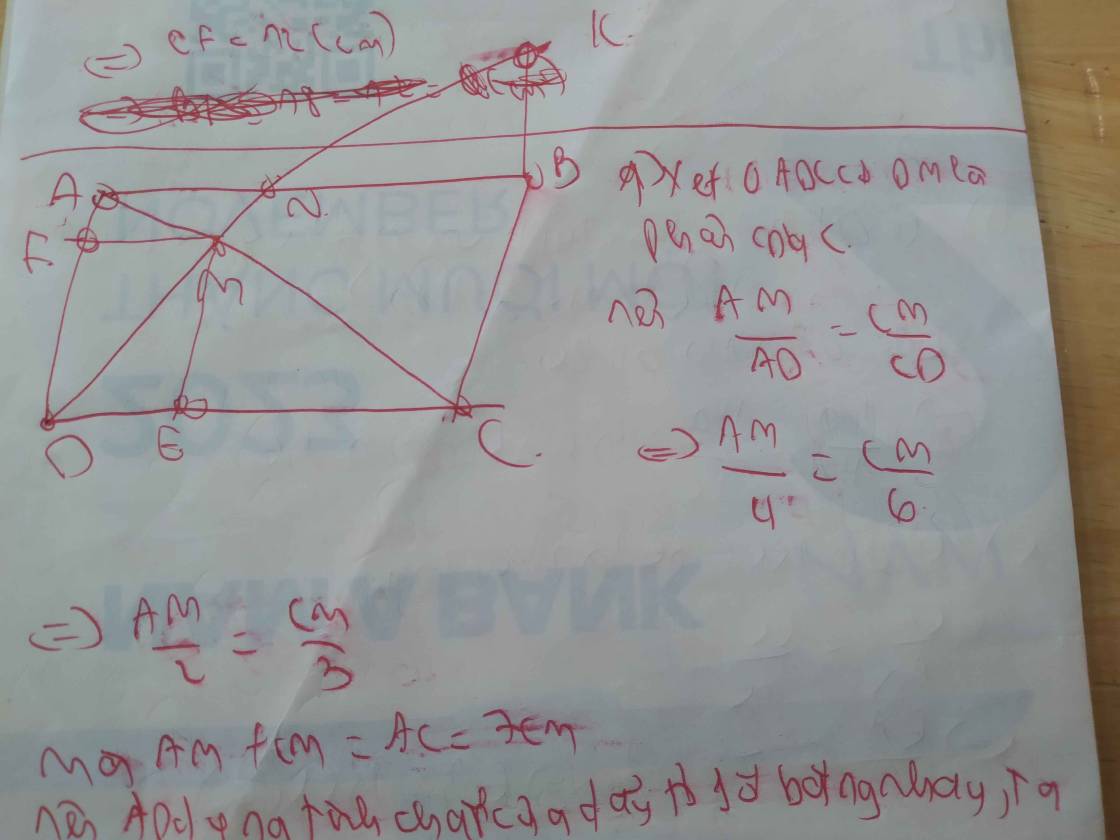 => CF = 12 (cm)
K
A
N
B
F
M
D
E
C
a) Xét Δ ADC có DM là
phân
nên AM/AD = CM/CD
=> AM/4 = CM/6
=> AM/2 = CM/3
mà AM + CM = AC = 7cm
nên Áp dụng tính chất của dãy tỉ số bằng nhau, ta